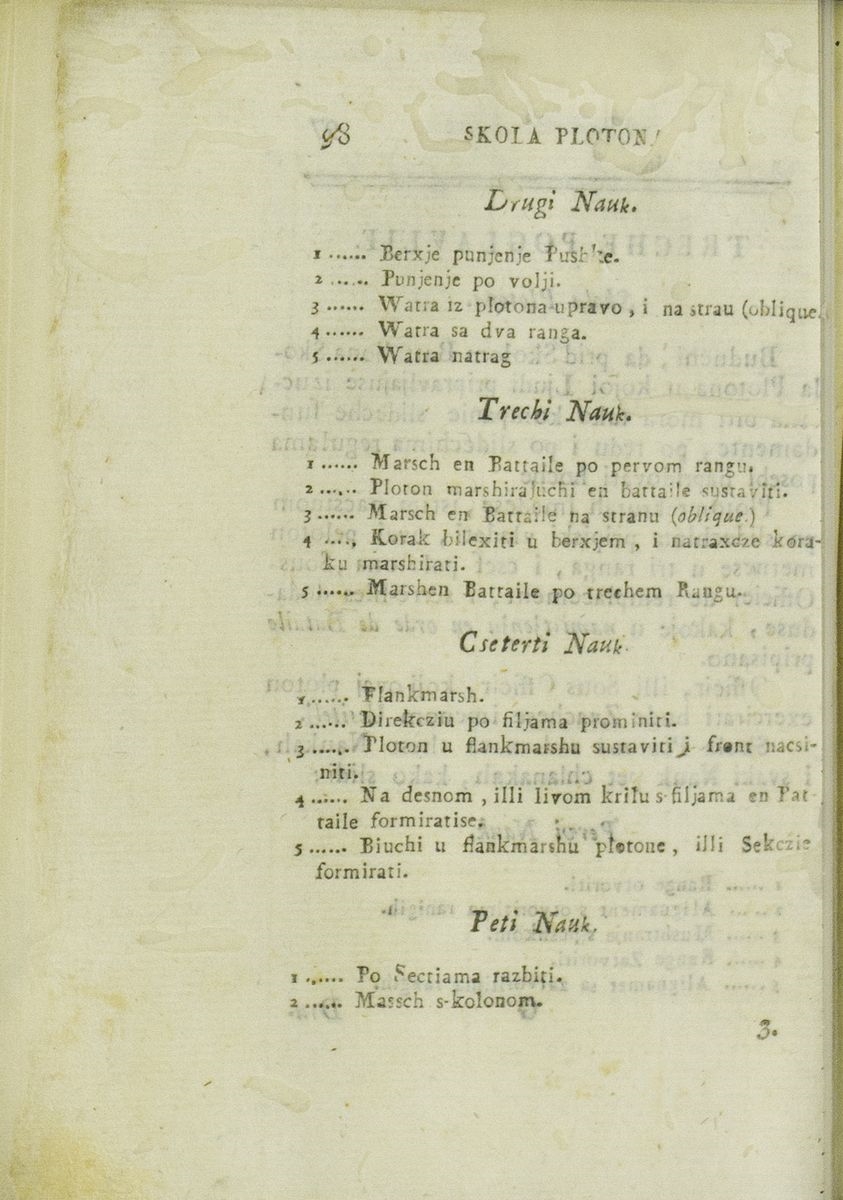 98 SKOLA PLOTON
Drugi Nauk.
1 ...... Berxje punjenje Pushke.
2 ...... Punjenje po volji.
3 ...... Watra iz plotona upravo, i na strau (oblique.
4 ...... Watra sa dva ranga.
5 ...... Watra natrag
Trechi Nauk.
1 ...... Marsch en Battaile po pervom rangu.
2 ...... Ploton marshirajuchi en battaile sustaviti.
3 ...... Marsch en Battaile na stranu (oblique.)
4 ...., Korak bilexiti u berxjem, i natraxcze kora-
ku marshirati.
5 ...... Marshen Battaile po trechem Rangu.
Cseterti Nauk.
1 ...... Flankmarsh.
2 ...... Direkcziu po filjama prominiti.
3 ...... Ploton u flankmarshu sustaviti i front nacsi-
niti.
4 ...... Na desnom, illi livom krilu s filjama en Pat
taile formiratise.
5 ...... Biuchi u flankmarshu plotone, illi Sekczie
formirati.
Peti Nauk.
1 ...... Po Sectiama razbiti.
2 ...... Massch s-kolonom.
3.